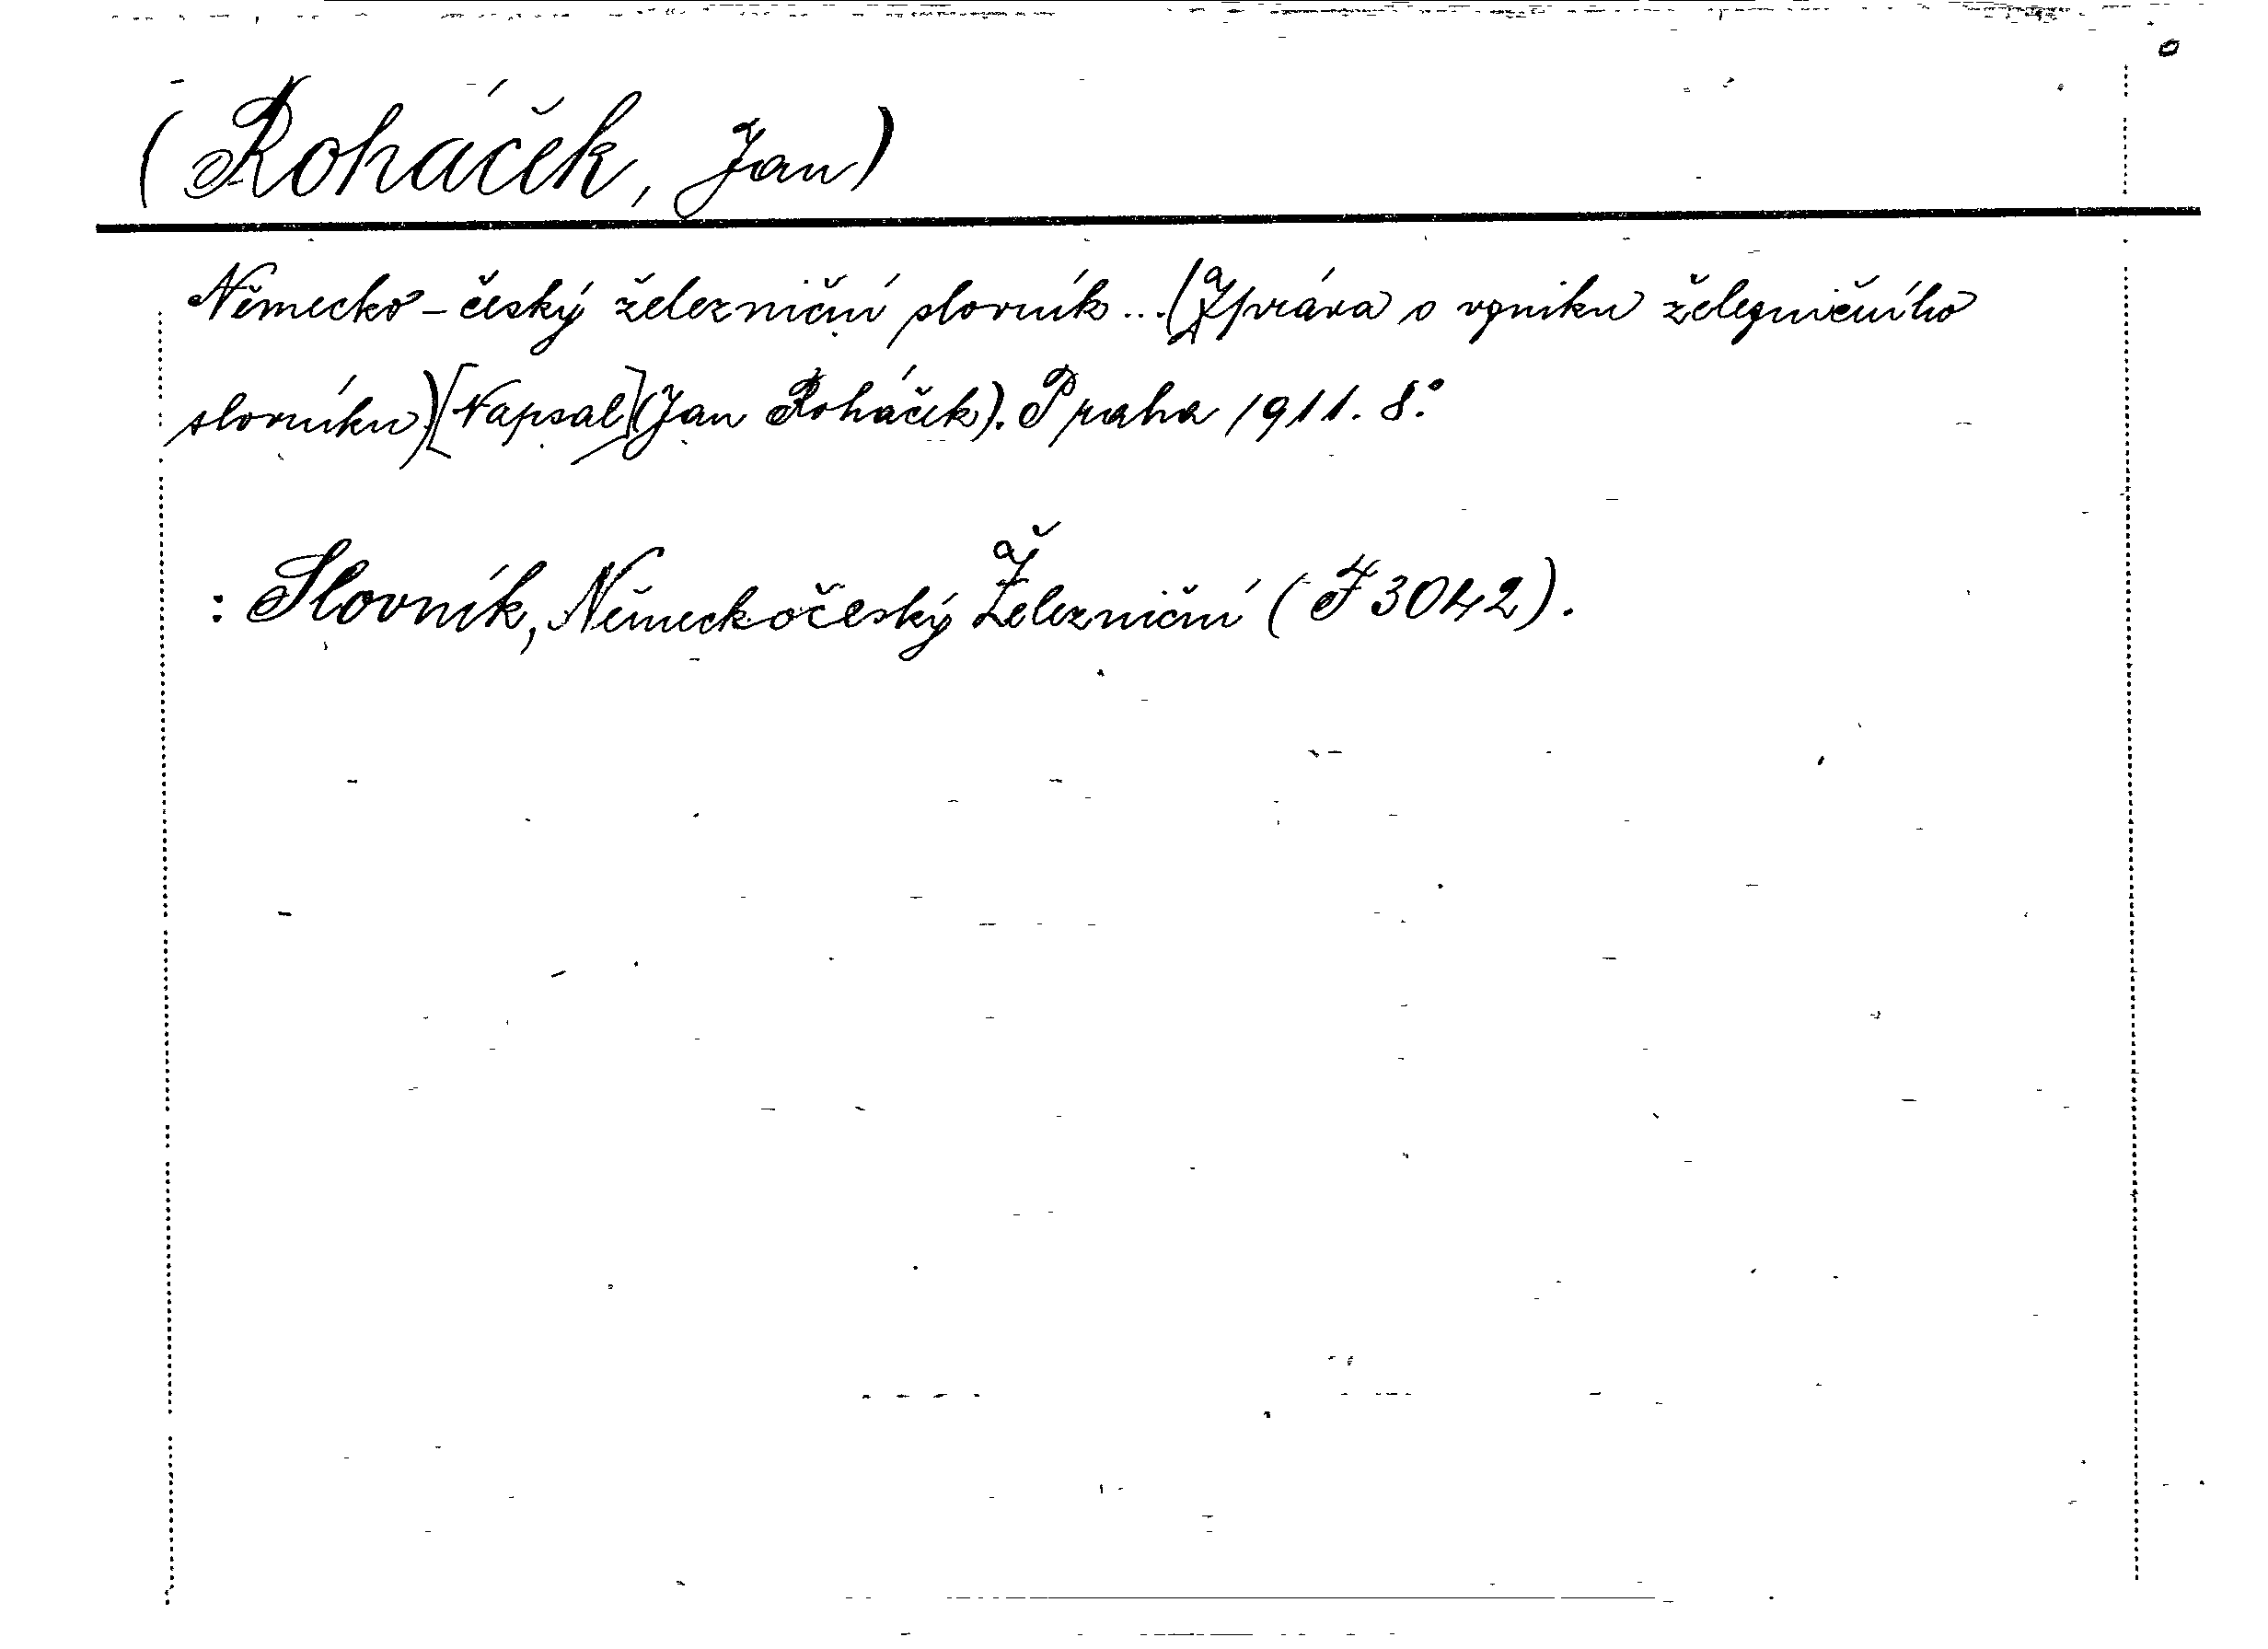 (Roháček, Jan)
Německo-český železniční slovník...(Zpráva o vzniku železničního
slovníku)[Napsal](Jan Roháček). Praha 1911. 8°.
: Slovník, Německočeský Železniční (F 3042).